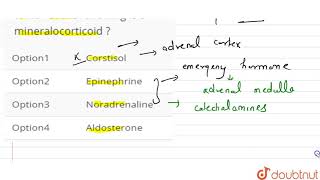 mineralocorticoid ?
Option1 x Corstisol → adrenal cortex
Option2 Epinephrine → emergeny hormone
→ adrenal medulle
Option3 Noradrenaline → catechalamines
Option4 Aldosterone
doubtnut